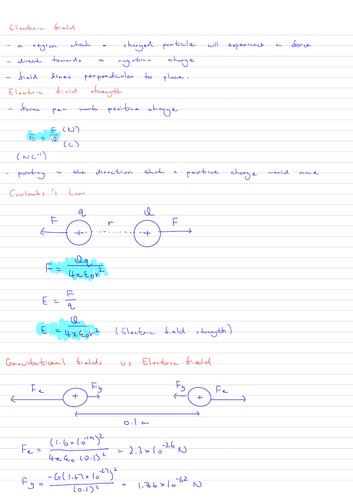 Electric field
- a region which a charged particle will experience a force
- direct towards a negative charge
- field lines perpendicular to plane.
Electric field strength
- force per unit positive charge
E = F/Q (N) (C)
(NC⁻¹)
- pointing in the direction that a positive charge would move
Coulomb's Law
F q r Q F
+ +
F = Qq/4πε₀r²
E = F/q
E = Q/4πε₀r² (Electric field strength)
Gravitational fields vs Electric field
Fe + Fg Fg + Fe
0.1m
Fe = (1.6×10⁻¹⁹)²/4πε₀(0.1)² = 2.3×10⁻²⁶ N
Fg = -G(1.67×10⁻²⁷)²/(0.1)² = 1.86×10⁻⁶² N